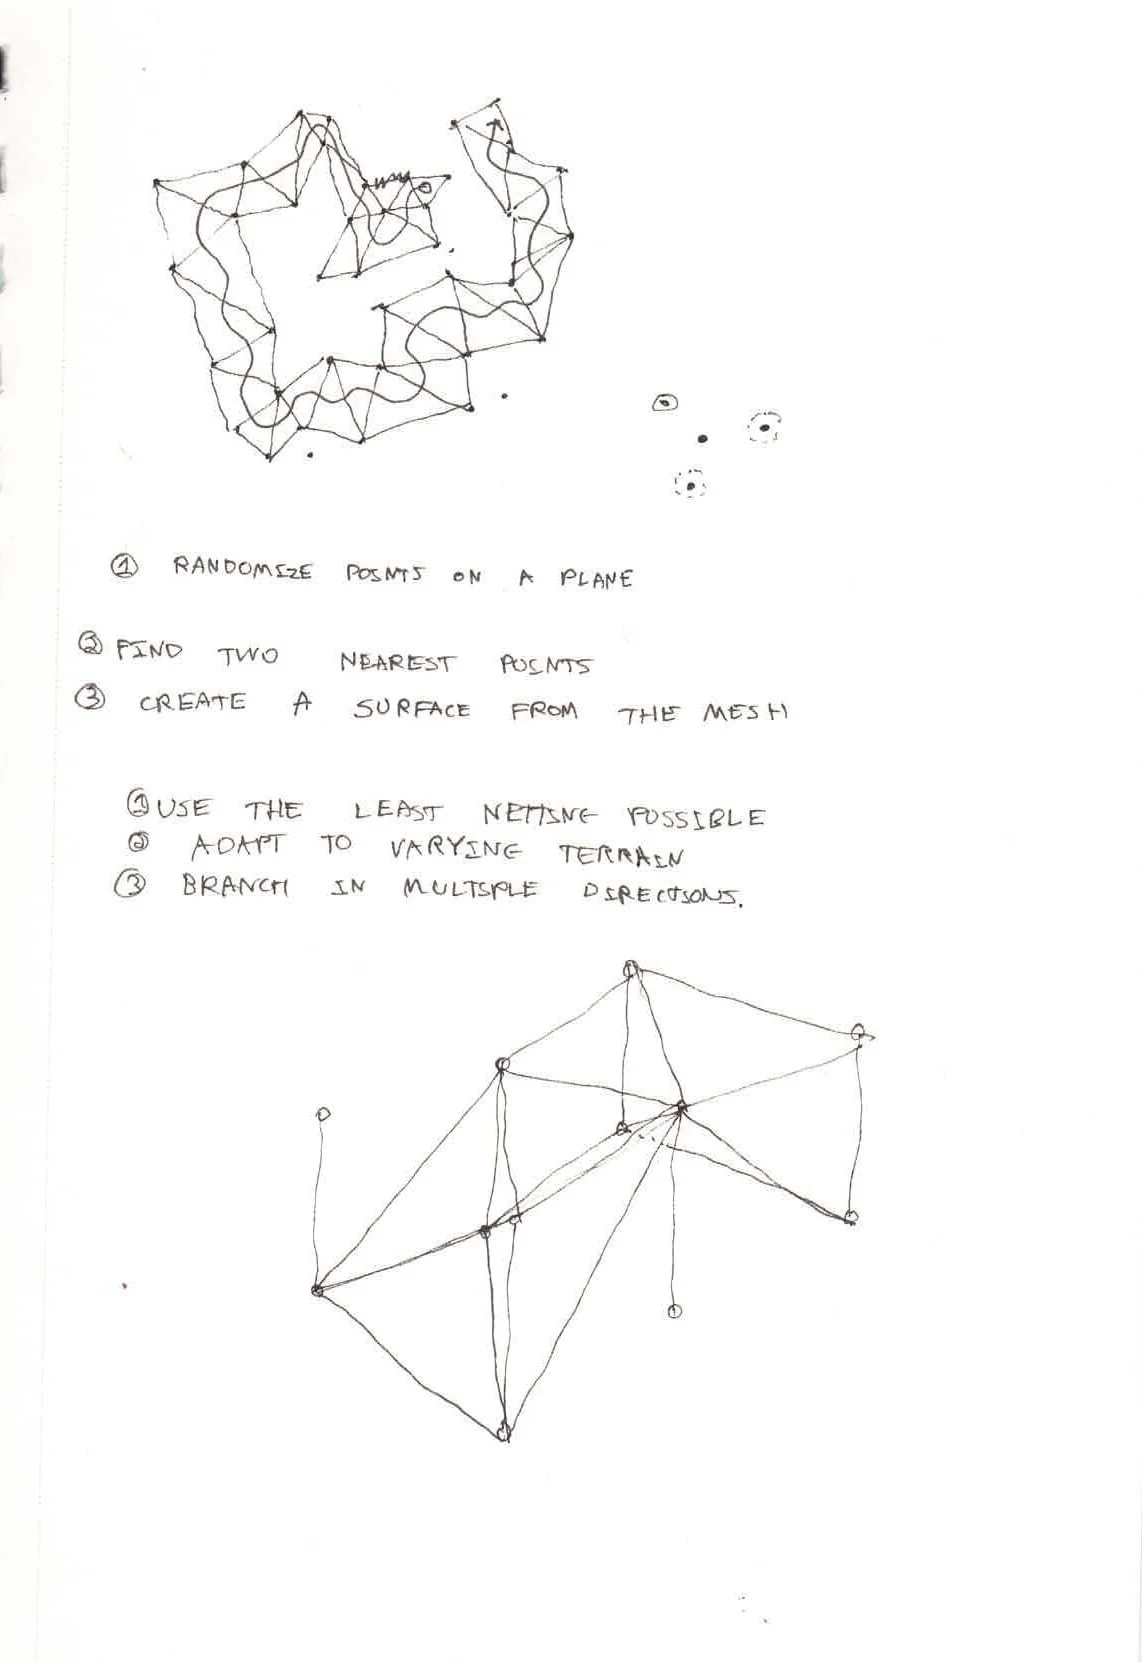 ① RANDOMIZE POINTS ON A PLANE
② FIND TWO NEAREST POINTS
③ CREATE A SURFACE FROM THE MESH
① USE THE LEAST NETTING POSSIBLE
② ADAPT TO VARYING TERRAIN
③ BRANCH IN MULTIPLE DIRECTIONS.